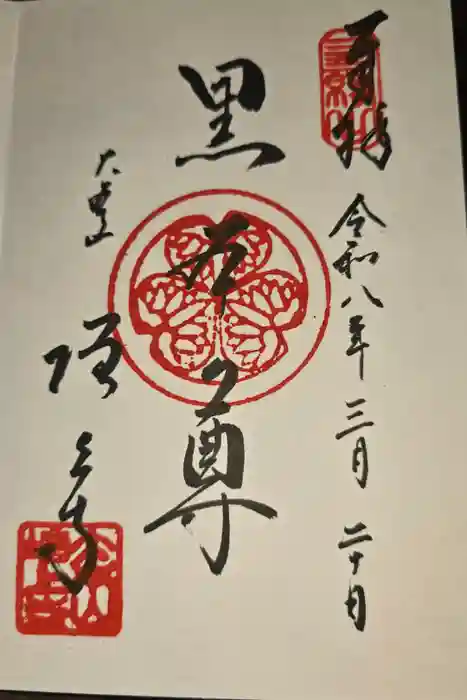 奉拝
令和八年三月二十日
黒本尊
大本山
増上寺